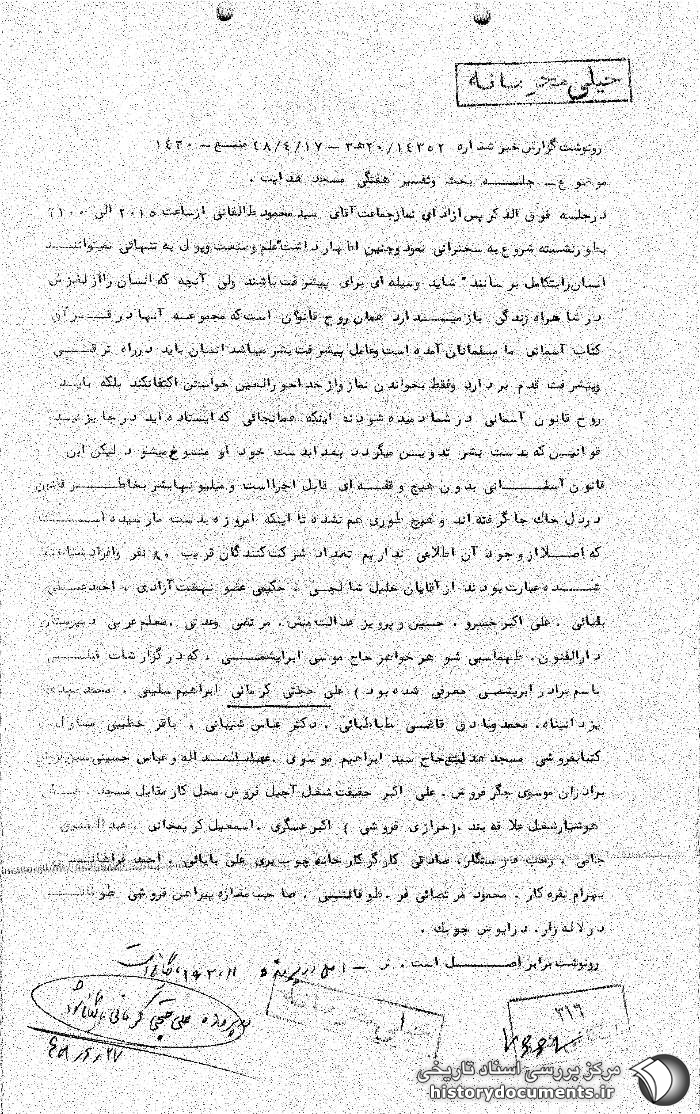 خیلی محرمانه
رونوشت گزارش خبر شماره ۲۰/۱۴۳۵۲ه۳ – ۴۸/۴/۱۷ منبع – ۱۴۳۰
موضوع – جلسه بحث وتفسیر هفتگی مسجد هدایت .
درجلسه فوق الذکر پس ازادای نمازجماعت آقای سید محمود طالقانی ازساعت ۲۰۱۵ الی ۲۱۰۰
بطور نشسته شروع به سخنرانی نمود وچنین اظهارداشت علم وصنعت وپول به تنهائی نمیتوانند
انسان رابتکامل برسانند " شاید وسیله ای برای پیشرفت باشند ولی آنچه که انسان راازلغزش
در شاهراه زندگی باز میدارد همان روح قانون است که مجموعه آنها در قرآن
کتاب آسمانی ما مسلمانان آمده است وعامل پیشرفت بشر میباشد انسان باید درراه ترقی
وپیشرفت قدم بردارد وفقط بخواندن نماز وازخدا حورالعین خواستن اکتفا نکند بلکه باید
روح قانون آسمانی در شما دمیده شود نه اینکه همانجائی که ایستاده اید درجا بزنید
قوانینی که بدست بشر تدوین میگردد بعدا بدست خود او منسوخ میشود لیکن این
قانون آسمانی بدون هیچ وقفه ای قابل اجرااست و میلیونهابشر بخاطر قانون
دردل خاک جا گرفته اند و هیچ طوری هم نشده تا اینکه امروزه بدست ما رسیده است
که اصلا ازوجود آن اطلاعی نداریم تعداد شرکت کنندگان قریب ۸۰ نفر وافراد شناخته
شده عبارت بودند از آقایان خلیل شالچی ، حکیمی عضو نهضت آزادی ، احمد علی
بابائی ، علی اکبر خسرو ، حسین و پرویز عدالت منش ، مرتضی وعدتی ، معلم عربی دبیرستان
دارالفنون ، طهماسبی شوهرخواهر حاج موسی ابریشمی ، که درگزارشات قبلی
باسم برادر ابریشمی معرفی شده بود ) علی حجتی کرمانی ابراهیم سلیمی ، محمد مهدی
یزدانپناه ، محمد صادق قاضی طباطبائی ، دکتر عباس شیبانی ، باقر خطیبی مسئول
کتابفروشی مسجد هدایت حاج سید ابراهیم موسوی ، اسداله و عباس حسینی
برادران موسوی جگر فروش ، علی اکبر حقیقت شغل آجیل فروش محل کار مقابل مسجد ،
هوشیارشغل علاقه بند ، (خرازی فروشی ) اکبر عسگری ، اسمعیل کریمخانی ،
صادقی کارگر کارخانه چوب بری علی بابائی ، احمد
بهرام نقره کار ، محمود مرتضائی فر ، طوفانیشی ، صاحب مغازه پیراهن فروشی
درلاله زار ، داریوش چوبک .
رونوشت برابر اصل است .
در پرونده علی حجتی کرمانی بایگانی شود
۲۷
۳۱۶
مرکز بررسی اسناد تاریخی
historydocuments.ir